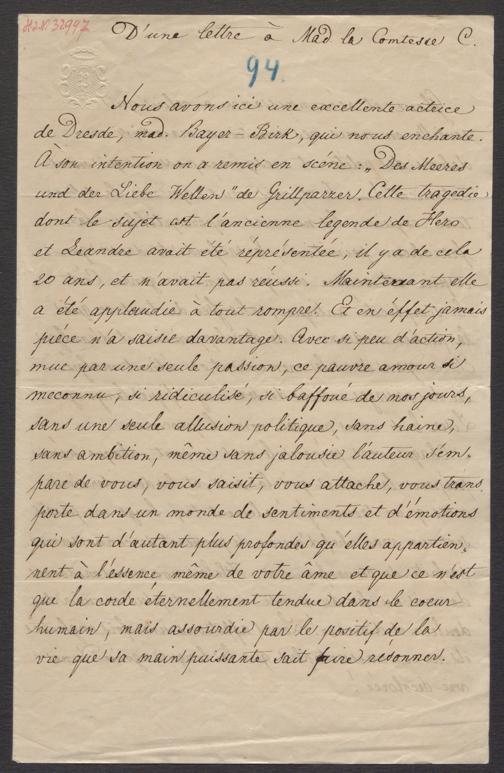 H.I.N. 32997
D'une lettre à Mad. la Comtesse C.
94.
Nous avons ici une excellente actrice
de Dresde, mad. Bayer-Bürk, qui nous enchante.
À son intention on a remis en scéne: „Des Meeres
und der Liebe Wellen" de Grillparzer. Cette tragedie
dont le sujet est l'ancienne legende de Hero
et Leandre avait été réprésentée, il y a de cela
20 ans, et n'avait pas réussi. Maintenant elle
a été applaudie à tout rompre! Et en éffet jamais
piéce n'a saisie davantage. Avec si peu d'action,
mue par une seule passion, ce pauvre amour si
meconnu, si ridiculisé, si baffoué de nos jours,
sans une seule allusion politique, sans haine,
sans ambition, même sans jalousie l'auteur s'em,
pare de vous, vous saisit, vous attache, vous trans,
porte dans un monde de sentiments et d'émotions
qui sont d'autant plus profondes qu'elles appartien,
nent à l'essence même de votre âme et que ce n'est
que la corde éternellement tendue dans le coeur
humain, mais assourdie par le positif de la
vie que sa main puissante sait faire résonner.